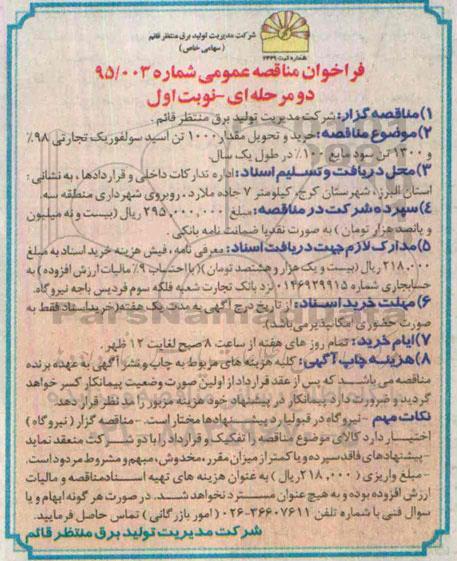 شرکت مدیریت تولید برق منتظر قائم
(سهامی خاص)
شماره ثبت ۲۴۴۹
فراخوان مناقصه عمومی شماره ۹۵/۰۰۳
دو مرحله ای -نوبت اول
۱)مناقصه گزار: شرکت مدیریت تولید برق منتظر قائم.
۲)موضوع مناقصه:خرید و تحویل مقدار۱۰۰۰ تن اسید سولفوریک تجارتی ۹۸٪
و ۱۳۰۰ تن سود مایع ۱۰۰٪ در طول یک سال.
۳)محل دریافت و تسلیم اسناد: اداره تدارکات داخلی و قراردادها، به نشانی:
استان البرز، شهرستان کرج، کیلومتر ۷ جاده ملارد، روبروی شهرداری منطقه سه.
۴)سپرده شرکت در مناقصه: مبلغ ۲۹۵,۰۰۰,۰۰۰ ریال (بیست و نه میلیون
و پانصد هزار تومان) به صورت نقد یا ضمانت نامه بانکی.
۵)مدارک لازم جهت دریافت اسناد: معرفی نامه، فیش هزینه خرید اسناد به مبلغ
۲۱۸,۰۰۰ ریال (بیست و یک هزار و هشتصد تومان)(با احتساب ۹٪ مالیات ارزش افزوده) به
حسابجاری شماره ۰۱۴۶۹۲۹۹۱۵ نزد بانک تجارت شعبه فلکه سوم فردیس باجه نیروگاه.
۶)مهلت خرید اسناد: از تاریخ درج آگهی به مدت یک هفته(خرید اسناد فقط به
صورت حضوری امکانپذیر می باشد)
۷)ایام خرید: تمام روز های هفته از ساعت ۸ صبح لغایت ۱۲ ظهر.
۸)هزینه چاپ آگهی: کلیه هزینه های مربوط به چاپ و نشر آگهی به عهده برنده
مناقصه می باشد که پس از عقد قرارداد از اولین صورت وضعیت پیمانکار کسر خواهد
گردید و ضرورت دارد پیمانکار در پیشنهاد خود هزینه مزبور را مد نظر قرار دهد.
نکات مهم -نیروگاه در قبول یا رد پیشنهادها مختار است. -مناقصه گزار (نیروگاه)
اختیار دارد کالای موضوع مناقصه را تفکیک و قرارداد را با دو شرکت منعقد نماید
-پیشنهادهای فاقد سپرده و یا کمتر از میزان مقرر، مخدوش، مبهم و مشروط مردود است.
-مبلغ واریزی (۲۱۸,۰۰۰ ریال) به عنوان هزینه های تهیه اسناد مناقصه و مالیات
ارزش افزوده بوده و به هیچ عنوان مسترد نخواهد شد. در صورت هر گونه ابهام و یا
سوال فنی با شماره تلفن ۳۶۶۰۷۶۱۱-۰۲۶ (امور بازرگانی) تماس حاصل فرمایید.
شرکت مدیریت تولید برق منتظر قائم